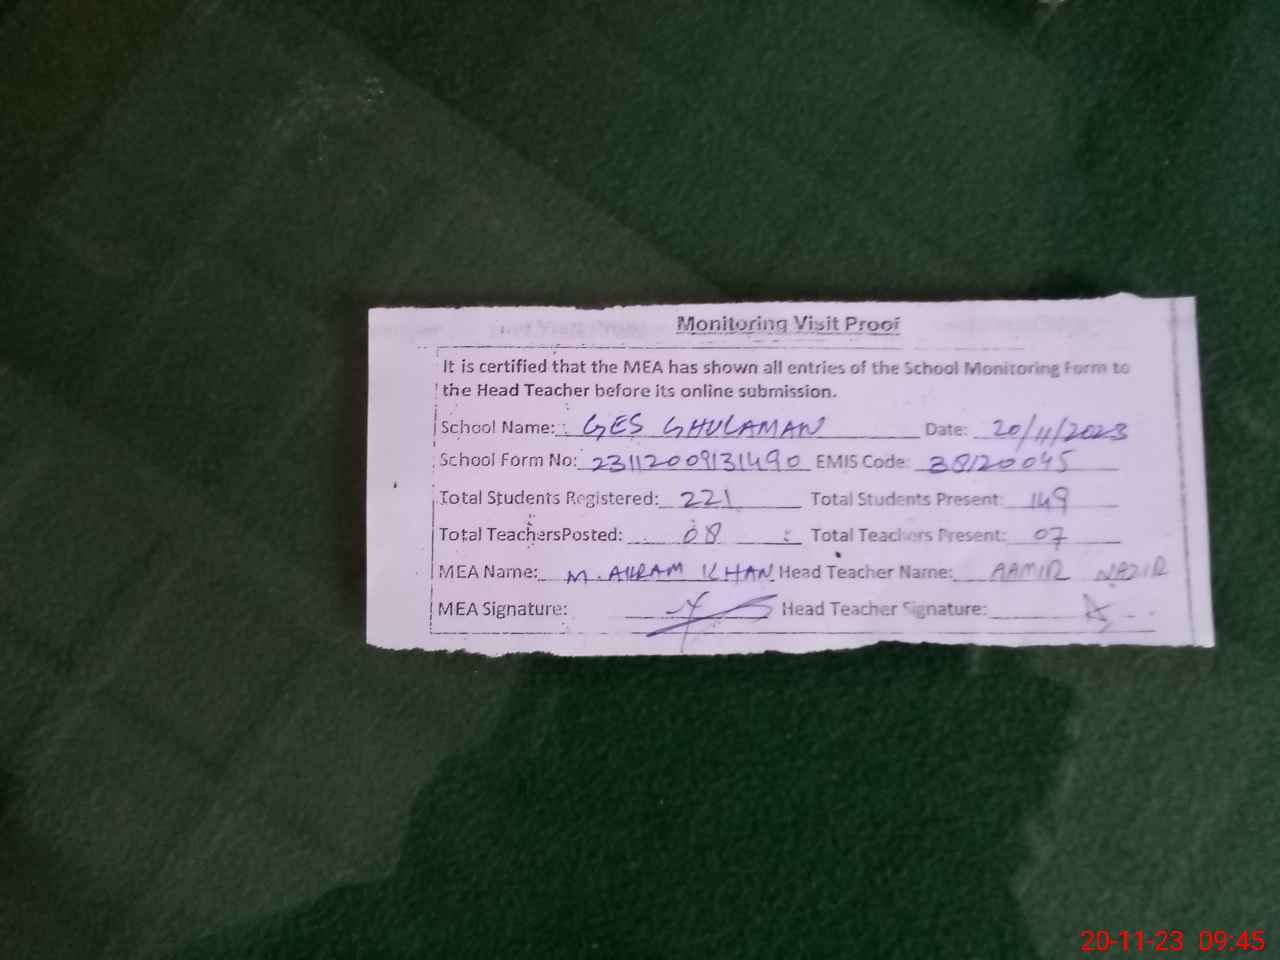 Monitoring Visit Proof
It is certified that the MEA has shown all entries of the School Monitoring Form to
the Head Teacher before its online submission.
School Name: GES GHULAMAN Date: 20/11/2023
School Form No: 23112009131490 EMIS Code: 38120045
Total Students Registered: 221 Total Students Present: 149
Total TeachersPosted: 08 Total Teachers Present: 07
MEA Name: M. AKRAM KHAN Head Teacher Name: AAMIR NAZIR
MEA Signature: Head Teacher Signature:
20-11-23 09:45